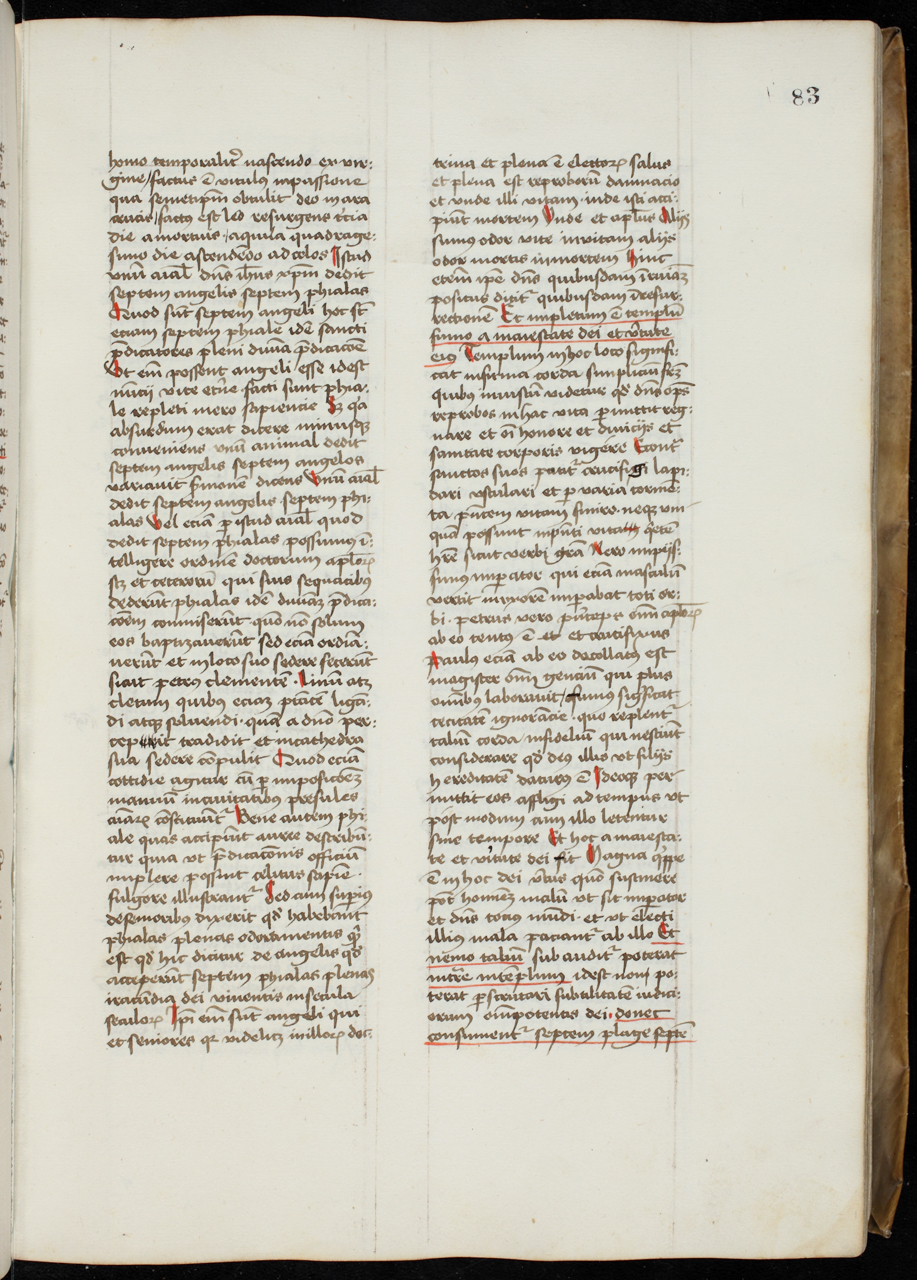 83
homo temporalit͛ nascendo ex vir-
gine / factus ē vitulus inpassione
qua semetip̄m obtulit deo in ara
crucis / factꝰ est leo resurgens t̄cia
die a mortuis · aquila quadrage-
simo die ascendēdo ad celos Istud
vnū aīal dn̄s ih̄us xp̄m dedit
septem angelis septem phialas
Quod sūt septem angeli hoc sūt
eciam septem phiale idē sancti
p̄dicatores pleni diuīa p̄dicacōe
Ut em̄ possent angeli esse idest
nūcij vite et̄ne facti sunt phia-
le repleti mero sapiencie Sꝫ qͣa
absurdum erat dicere minusqꝫ
conueniens vnū animal dedit
septem angelis septem angelos
variauit s̄monē dicens Vnū aīal
dedit septem angelis septem phi-
alas Vel ecia ꝑ istud aīal quod
dedit septem phialas possumus ī-
telligere ordinē doctorum apl̄oꝝ
sꝫ et ceterorū qui suis sequacibus
dederūt phialas idē diuinā p̄dica-
cōem cōmiserūt · quō nō solum
eos baptizauerūt sed eciā ordia-
uerūt et in loco suo sedere fecerūt
sicut petrus clementē · Linū atꝫ
cletum quibus eciaꝫ ptātē ligā-
di atqꝫ soluendi · quā a dn̄o per-
cepit tradidit et incathedra
sua sedere cōpulit Quod eciā
cottidie agitur cū ꝑ inposicōeꝫ
manuū inciuitatibus presules
aīaꝝ cōstituūt᷑ Bene autem phi-
ale quas accipiūt auree describū-
tur quia vt p̄dicacōnis officiū
implere possint celitus sapiē ·
fulgore illustrant᷑ Sed cum suꝑius
de senioribus dixerit qd̄ habebāt
phialas plenas odoramentis q̄
est qd̄ hic dicitur de angelis qd̄
acceperūt septem phialas plenas
iracūdia dei viuentis insecula
seculoꝝ Ip̄i em̄ sūt angeli qui
et seniores qꝛ videlicꝫ in illoꝝ doc-
trina et plena ē electoꝝ salus
et plena est reproborū damnacio
et vnde illi vitam · inde isti acci-
piūt mortem Vnde et apl̄us Alijs
sumus odor vite invitam alijs
odor mortis in mortem Hinc
etem̄ ip̄e dn̄s quibusdam ī ruinā
positus dicit᷑ quibusdam ī resur-
rectionē Et impletum ē templū
fumo a maiestate dei et v̄tute
eiꝰ Templum in hoc loco signifi-
cat infirma corda simpliciū fr̄m
quibus iniustū videtur qd̄ dn̄s om̄ps
reprobos in hac vita ꝑmittit reg-
nare et oī honore et diuicijs et
sanitate corporis vigere Econt᷑
sanctos suos patit᷑ crucifigi lapi-
dari vstulari et ꝑ varia tormē-
ta p̄ntem vitam finire · neqꝫ vn-
quā possunt inp̄nti vitam q̄etē
hr̄e sicut verbi grā Nero impijs-
simus imꝑator qui eciā masculū
vertit in vxorē imꝑabat toti or-
bi · petrus vero princeps om̄ apl̄oꝝ
ab eo tentꝰ ē et et crucifixus
Paulus eciā ab eo decollatꝰ est
magister om̄ genciū qui plus
om̄ibus laborauit / fumus significat
cecitatē ignorancie · quo replent᷑
taliū corda infideliū qui nesciūt
considerare qd̄ deus illis vt filijs
hereditatē daturus ē Ideoqꝫ per-
mittit eos affligi ad tempus vt
post modum cum illo letentur
sine tempore Et hoc a maiesta-
te et v̄tute dei fit Magna q̄ppe
ē in hoc dei v̄tus quō sustinere
pōt homineꝫ malū vt sit imꝑator
et dn̄s tocius mūdi · et vt electi
illius mala paciant᷑ ab illo Et
nemo taliū subaudit᷑ poterat
intr̄e intēplum idest non po-
terat ꝑscrutari subtilitatē iudici-
orum om̄ipotentis dei · donec
consument᷑ septem plage septē